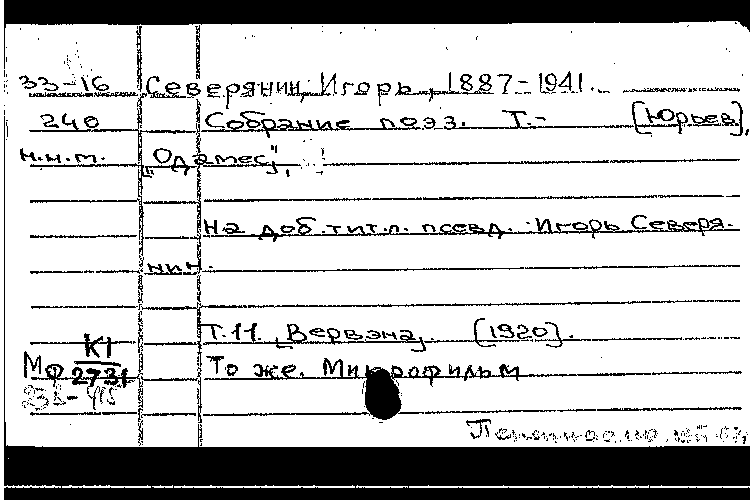 33-16 Северянин, Игорь, 1887-1941.
240 Собрание поэз. Т.- [Юрьев],
н.м.т. „Одамес",
На доб. тит. л. псевд.: Игорь Северя-
нин.
Т.11. „Вервэна„. [1920].
К1
Мф 2731 То же. Микрофильм